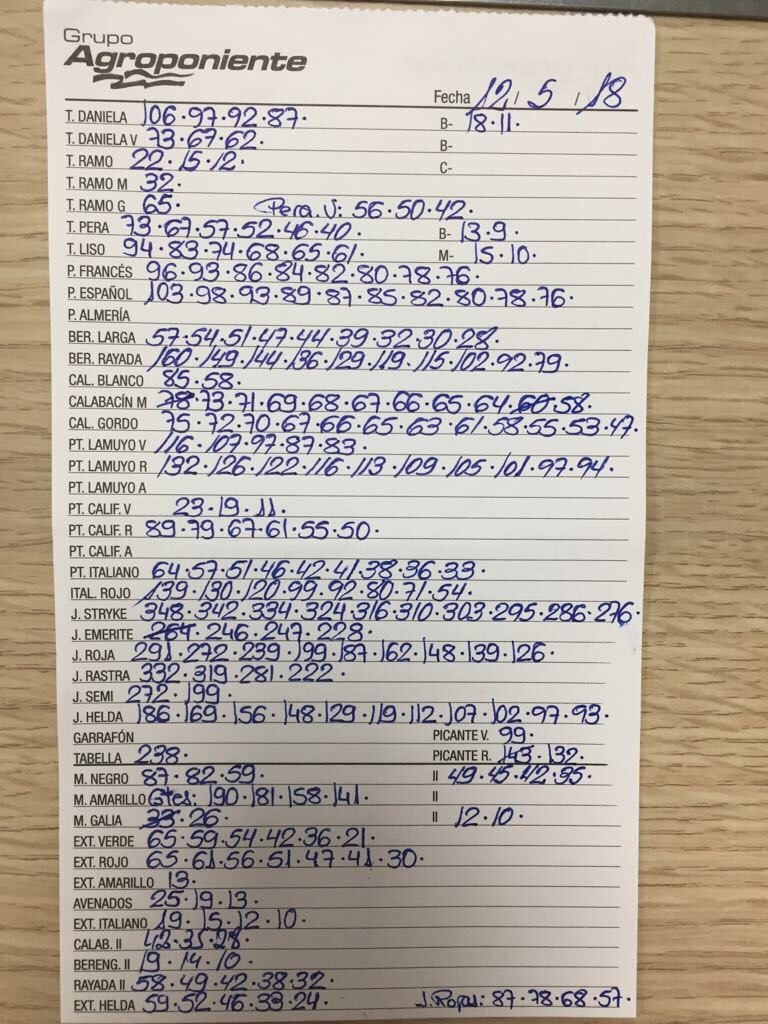 Grupo
Agroponiente
Fecha 12 / 5 / 18
T. DANIELA 106·97·92·87· B- 18·11·
T. DANIELA V 73·67·62· B-
T. RAMO 22·15·12· C-
T. RAMO M 32·
T. RAMO G 65· Pera. V: 56·50·42·
T. PERA 73·67·57·52·46·40· B- 13·9·
T. LISO 94·83·74·68·65·61· M- 15·10·
P. FRANCÉS 96·93·86·84·82·80·78·76·
P. ESPAÑOL 103·98·93·89·87·85·82·80·78·76·
P. ALMERÍA
BER. LARGA 57·54·51·47·44·39·32·30·28·
BER. RAYADA 160·149·144·136·129·119·115·102·92·79·
CAL. BLANCO 85·58·
CALABACÍN M 78·73·71·69·68·67·66·65·64·60·58·
CAL. GORDO 75·72·70·67·66·65·63·61·58·55·53·47·
PT. LAMUYO V 116·107·97·87·83·
PT. LAMUYO R 132·126·122·116·113·109·105·101·97·94·
PT. LAMUYO A
PT. CALIF. V 23·19·11·
PT. CALIF. R 89·79·67·61·55·50·
PT. CALIF. A
PT. ITALIANO 64·57·51·46·42·41·38·36·33·
ITAL. ROJO 139·130·120·99·92·80·71·54·
J. STRYKE 348·342·334·324·316·310·303·295·286·276·
J. EMERITE 264·246·247·228·
J. ROJA 291·272·239·199·187·162·148·139·126·
J. RASTRA 332·319·281·222·
J. SEMI 272·199·
J. HELDA 186·169·156·148·129·119·112·107·102·97·93·
GARRAFÓN PICANTE V. 99·
TABELLA 238· PICANTE R. 143·132·
M. NEGRO 87·82·59· II 49·45·42·35·
M. AMARILLO Gtes: 190·181·158·141· II
M. GALIA 33·26· II 12·10·
EXT. VERDE 65·59·54·42·36·21·
EXT. ROJO 65·61·56·51·47·41·30·
EXT. AMARILLO 13·
AVENADOS 25·19·13·
EXT. ITALIANO 19·15·12·10·
CALAB. II 42·35·28·
BERENG. II 19·14·10·
RAYADA II 58·49·42·38·32·
EXT. HELDA 59·52·46·33·24· J. Rojas: 87·78·68·57·